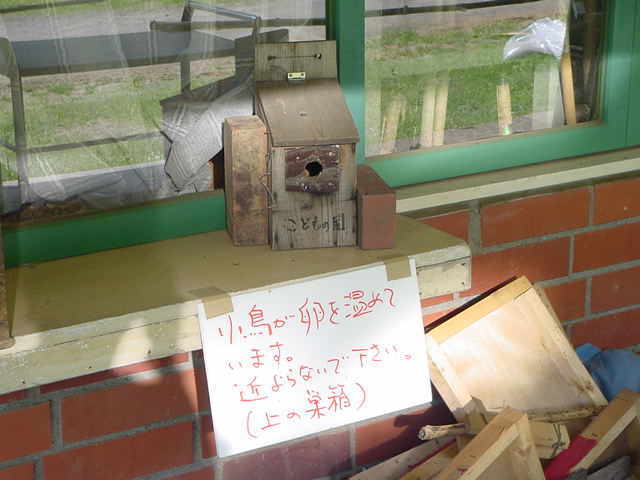 こどもの園
小鳥が卵を温めて
います。
近よらないで下さい。
(上の巣箱)